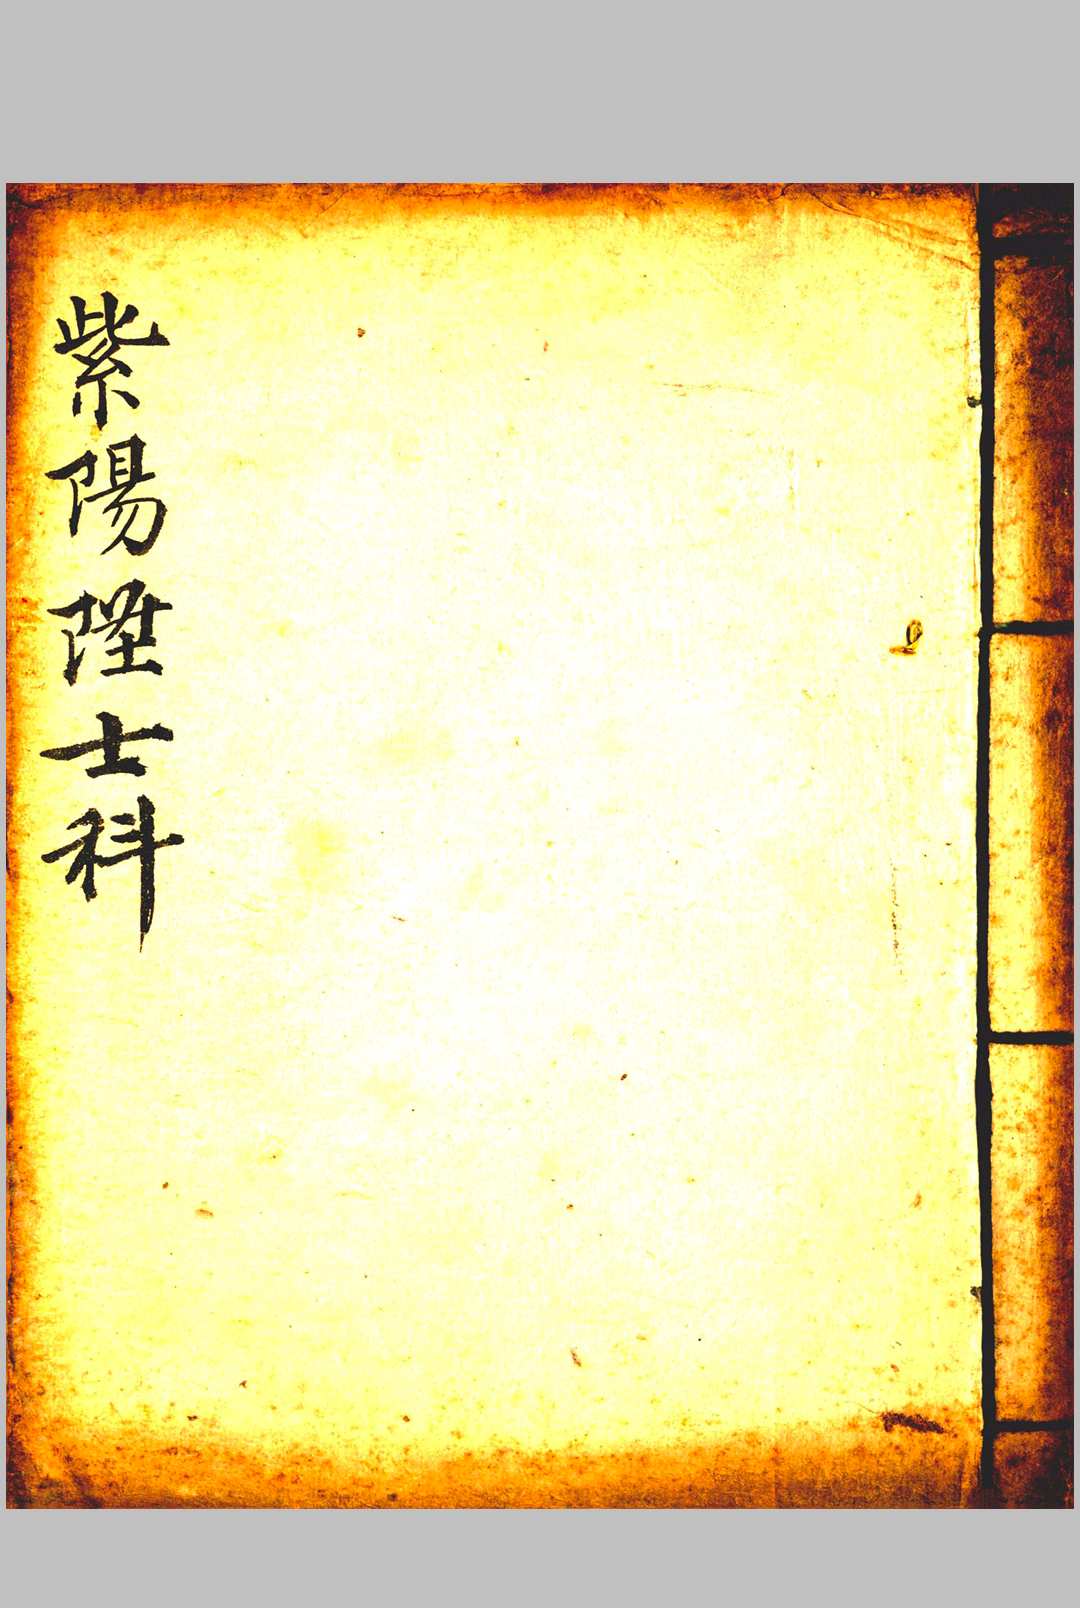 紫陽陞士科